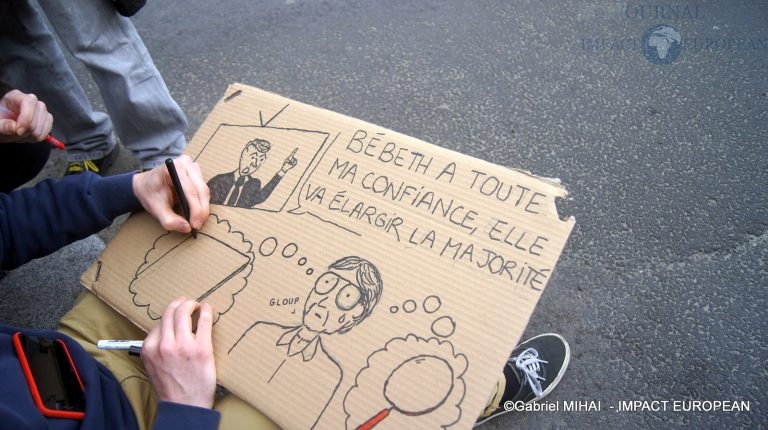 JOURNAL
IMPACT EUROPEAN
BÉBETH A TOUTE
MA CONFIANCE, ELLE
VA ÉLARGIR LA MAJORITÉ
GLOUP
©Gabriel MIHAI - IMPACT EUROPEAN